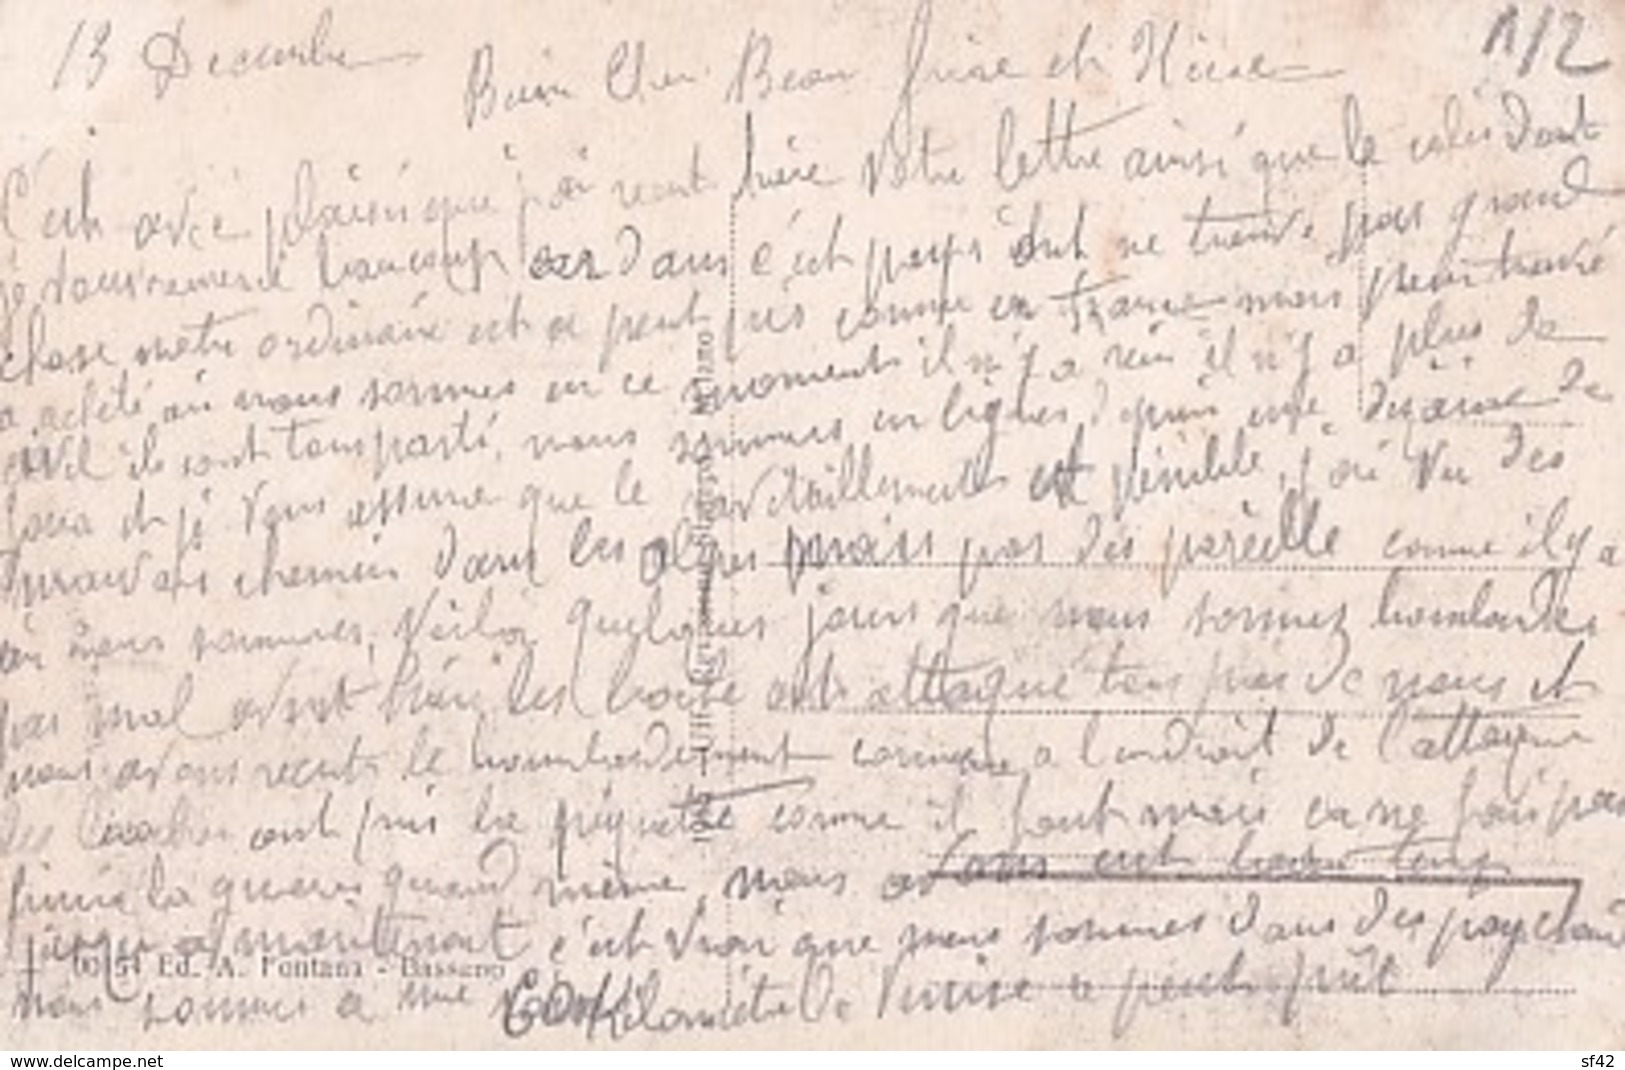 13 Decembre
1/2
Bien Cher Beau frère et Nièce
C'est avec plaisir que j'ai recut hière votre lettre ainsi que le colis dont
je vous remercie beaucoup car dans c'est pays ont ne trouve pas grand
chose notre ordinaire est a peut près comme en France mais pour trouvé
a acheté où nous sommes en ce moment il n'y a rien il n'y a plus de
civil ils sont tous parti, nous sommes en lignes depuis une dizaine de
jours et je vous assure que le ravitaillement est pénible, j'ai vu des
mauvais chemin dans les alpes mais pas des pareille comme il y a
où nous sommes, Voila quelques jours que nous sommes bombardes
pas mal avant hier les boche ont attaqué tous près de nous et
nous avons recut le bombardement comme a l'endroit de l'attaque
les boches ont pris la piquette comme il faut mais ca ne fais pas
finir la guerre quand même, nous avons eut beau temps
jusqu'a maintenant c'est vrai que nous sommes dans des pays chaud
nous sommes a une Kilomètre de Venise a peut prêt
60154 Ed. A. Fontana - Bassano
Milano